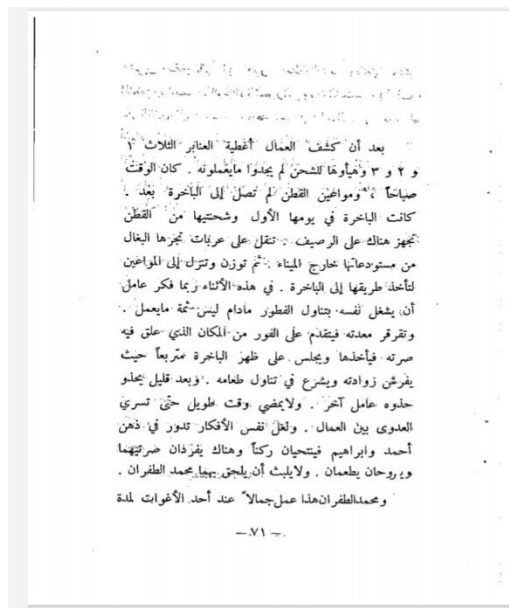 بعد أن كشف العمال أغطية العنابر الثلاث ١
و ٢ و ٣ وهيأوها للشحن لم يجدوا مايعملونه . كان الوقت
صباحاً ، ومواعين القطن لم تصل إلى الباخرة بعد .
كانت الباخرة في يومها الأول وشحنتها من القطن
تجهز هناك على الرصيف . تنقل على عربات تجرها البغال
من مستودعاتها خارج الميناء . ثم توزن وتنزل إلى المواعين
لتأخذ طريقها إلى الباخرة . في هذه الأثناء ربما فكر عامل
أن يشغل نفسه بتناول الفطور مادام ليس ثمة مايعمل .
وتقرقر معدته فيتقدم على الفور من المكان الذي علق فيه
صرته فيأخذها ويجلس على ظهر الباخرة متربعاً حيث
يفرش زوادته ويشرع في تناول طعامه . وبعد قليل يحذو
حذوه عامل آخر . ولايمضي وقت طويل حتى تسري
العدوى بين العمال . ولعل نفس الأفكار تدور في ذهن
أحمد وابراهيم فينتحيان ركناً وهناك يفردان صرتيهما
ويروحان يطعمان . ولايلبث أن يلحق بهما محمد الطفران .
ومحمدالطفران هذا عمل جمالاً عند أحد الأغوات لمدة
— ٧١ —